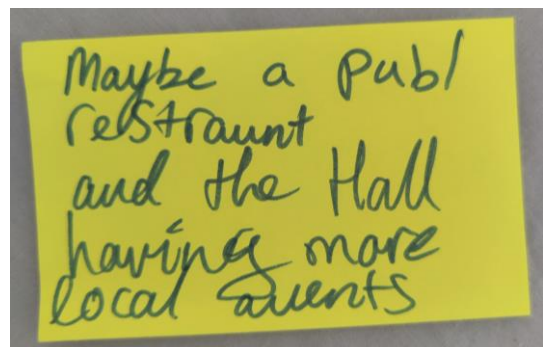 Maybe a pub/
restraunt
and the Hall
having more
local events